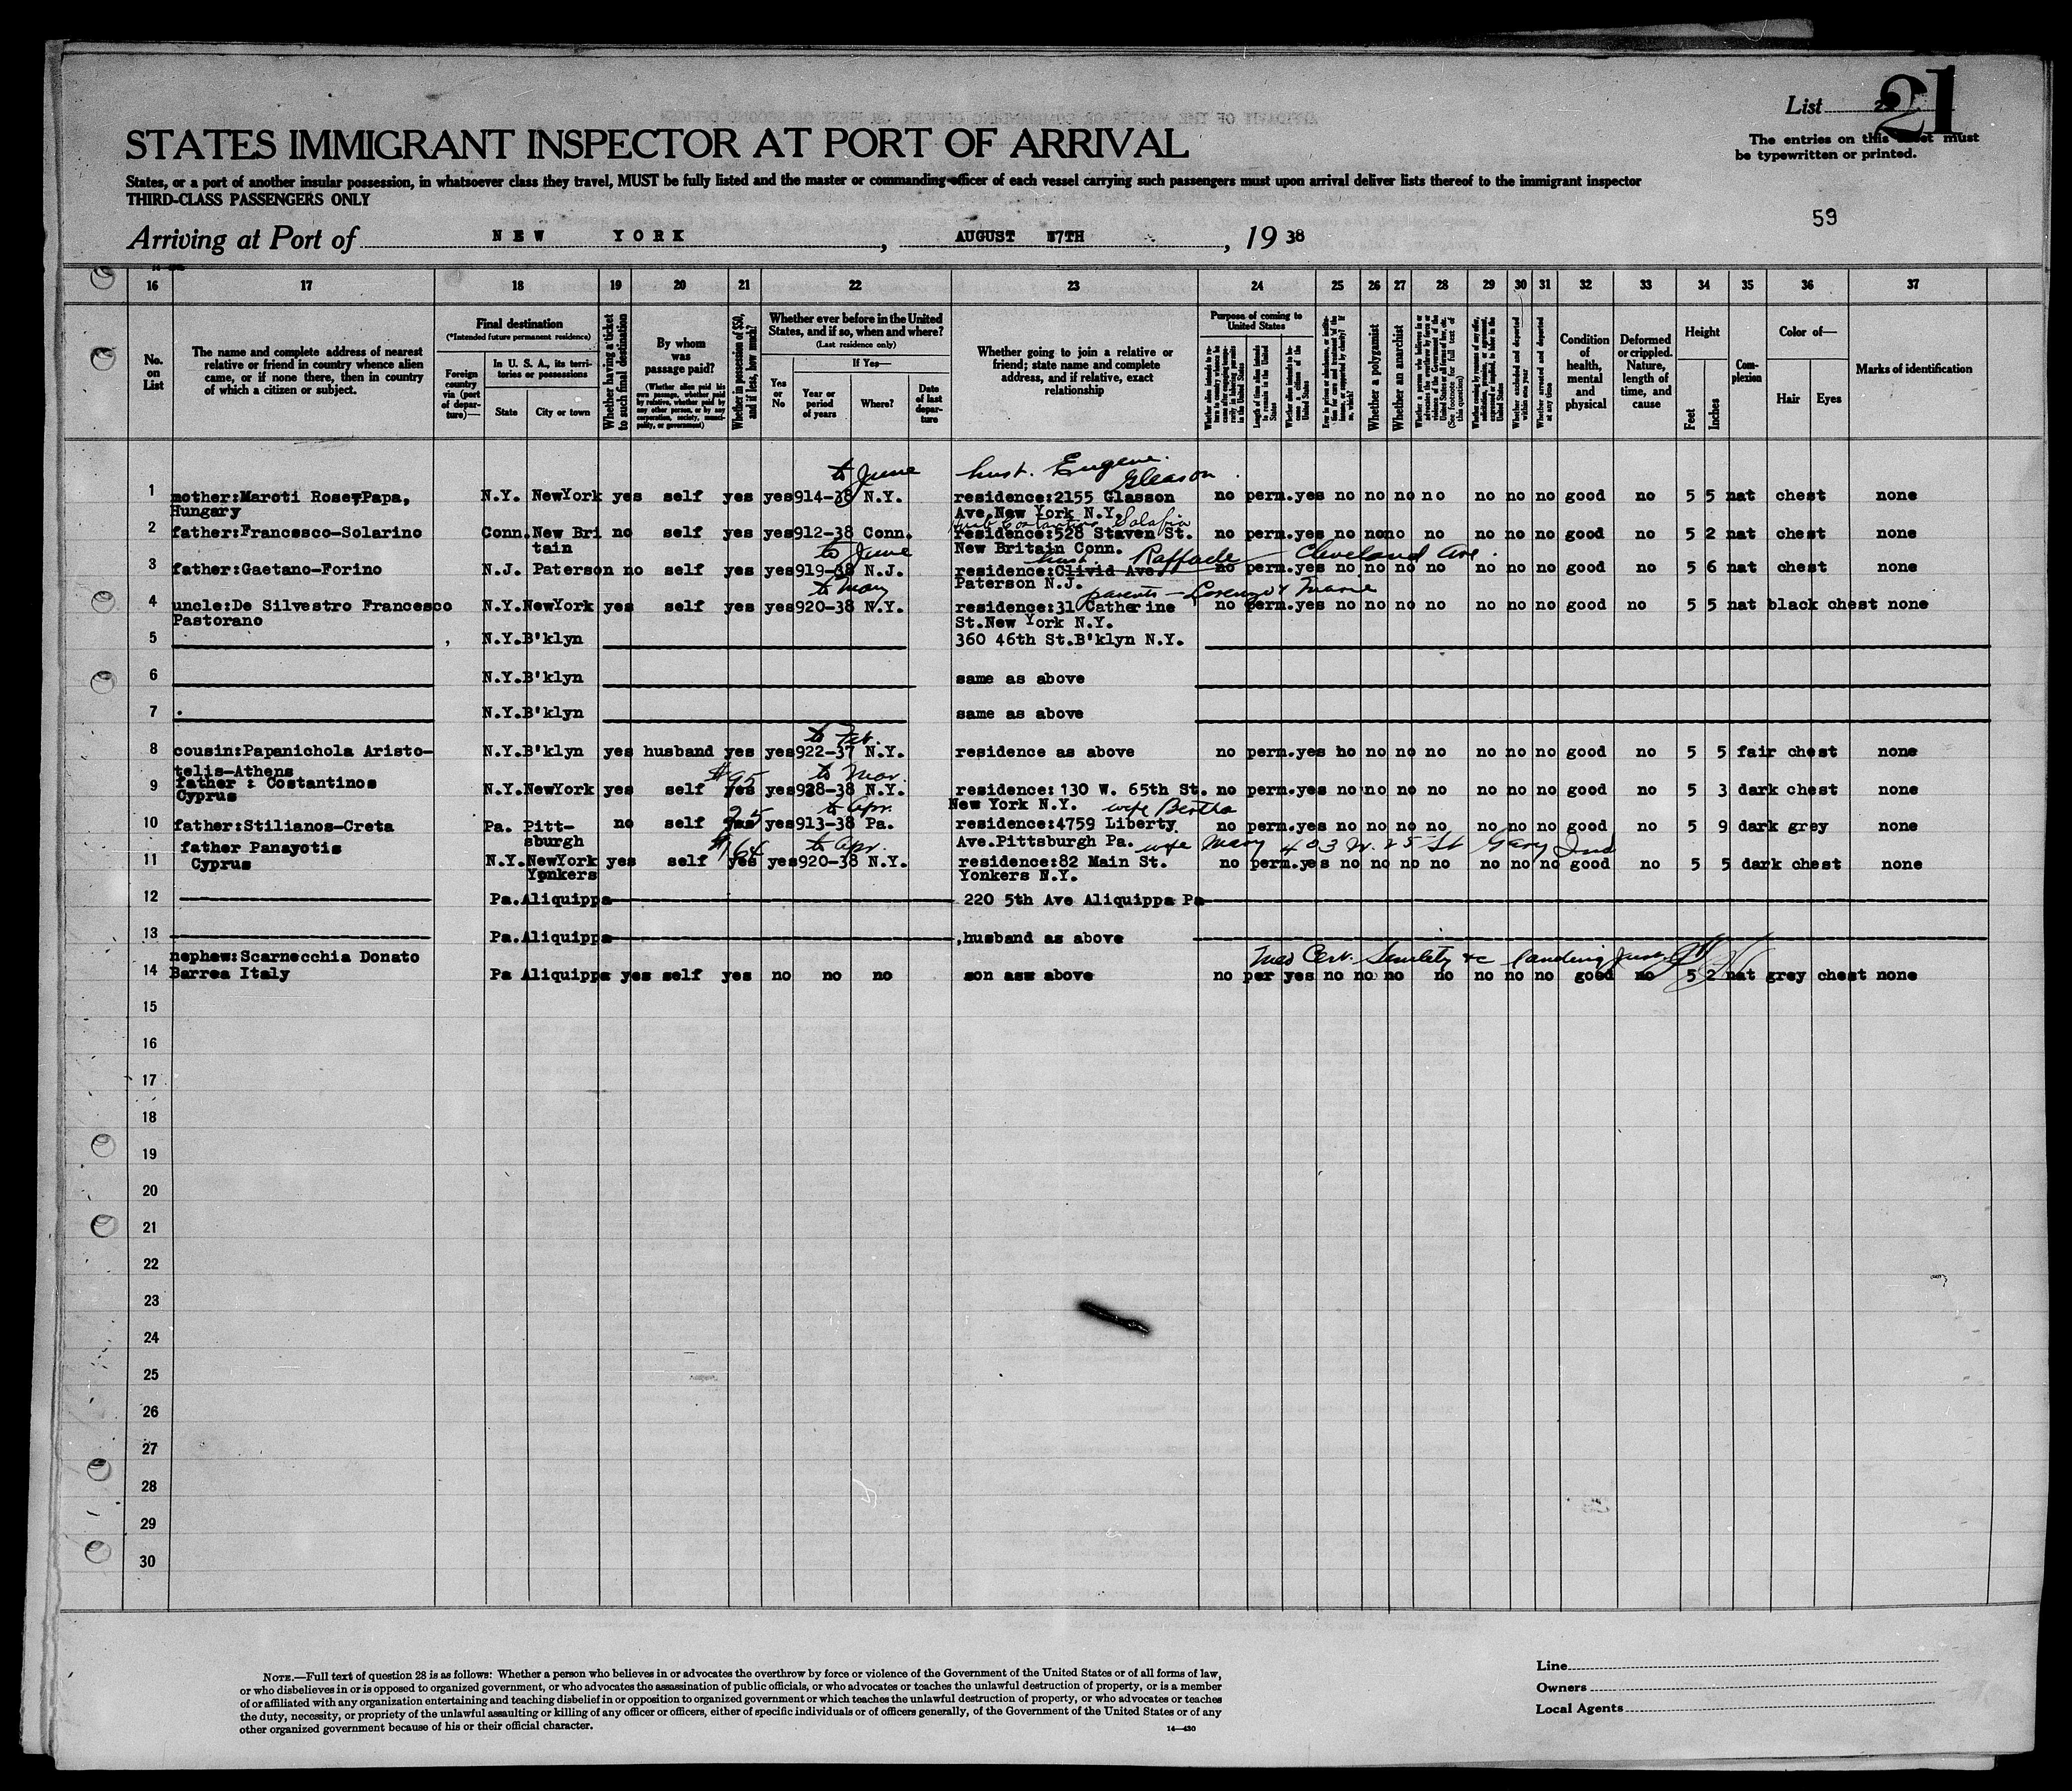 List 2 21
The entries on this sheet must
be typewritten or printed.
STATES IMMIGRANT INSPECTOR AT PORT OF ARRIVAL
States, or a port of another insular possession, in whatsoever class they travel, MUST be fully listed and the master or commanding officer of each vessel carrying such passengers must upon arrival deliver lists thereof to the immigrant inspector
THIRD-CLASS PASSENGERS ONLY
59
Arriving at Port of NEW YORK, AUGUST 17TH, 19 38
16 17 18 19 20 21 22 23 24 25 26 27 28 29 30 31 32 33 34 35 36 37
No. on List
The name and complete address of nearest relative or friend in country whence alien came, or if none there, then in country of which a citizen or subject.
Final destination
(*Intended future permanent residence)
Foreign country via (port of departure)—
In U. S. A., its territories or possessions
State City or town
Whether having a ticket to such final destination
By whom was passage paid?
(Whether alien paid his own passage, whether paid by relative, whether paid by any other person, or by any corporation, society, municipality, or government)
Whether in possession of $50, and if less, how much?
Whether ever before in the United States, and if so, when and where?
(Last residence only)
Yes or No
If Yes—
Year or period of years
Where?
Date of last departure
Whether going to join a relative or friend; state name and complete address, and if relative, exact relationship
Purpose of coming to United States
Length of time alien intends to remain in the United States
Whether alien intends to become a citizen of the United States
Whether a polygamist
Whether an anarchist
Whether excluded and deported within one year
Whether arrested and deported at any time
Condition of health, mental and physical
Deformed or crippled. Nature, length of time, and cause
Height
Feet Inches
Complexion
Color of—
Hair Eyes
Marks of identification
to June hust. Eugene.
Gleason
1 mother:Maroti Rose,Papa, N.Y. NewYork yes self yes yes 914-38 N.Y. residence:2155 Glasson no perm.yes no no no no no no no good no 5 5 nat chest none
Hungary Ave.New York N.Y.
2 father:Francesco-Solarino Conn. New Bri no self yes yes 912-38 Conn. residence:528 Staven St. no perm.yes no no no no no no no good no 5 2 nat chest none
tain New Britain Conn.
to June hust. Raffaele — Cleveland Ave.
3 father:Gaetano-Forino N.J. Paterson no self yes yes 919-38 N.J. residence:Clivid Ave. no perm.yes no no no no no no no good no 5 6 nat chest none
Paterson N.J.
to May parents — Lorenzo & Marie
4 uncle:De Silvestro Francesco N.Y. NewYork yes self yes yes 920-38 N.Y. residence:31 Catherine no perm.yes no no no no no no no good no 5 5 nat black chest none
Pastorano St.New York N.Y.
5 N.Y. B'klyn 360 46th St.B'klyn N.Y.
6 N.Y. B'klyn same as above
7 N.Y. B'klyn same as above
to Feb.
8 cousin:Papanichola Aristo- N.Y. B'klyn yes husband yes yes 922-37 N.Y. residence as above no perm.yes no no no no no no no good no 5 5 fair chest none
telis-Athens
$95 to Mar.
9 father : Costantinos N.Y. NewYork yes self yes yes 928-38 N.Y. residence: 130 W. 65th St. no perm.yes no no no no no no no good no 5 3 dark chest none
Cyprus New York N.Y.
25 to Apr. wife Bertha
10 father:Stilianos-Creta Pa. Pitt- no self yes yes 913-38 Pa. residence:4759 Liberty no perm.yes no no no no no no no good no 5 9 dark grey none
sburgh Ave.Pittsburg Pa.
$164 to Apr. wife Mary 403 W. 25 St Gary Ind
11 father Panayotis N.Y. NewYork yes self yes yes 920-38 N.Y. residence:82 Main St. no perm.yes no no no no no no no good no 5 5 dark chest none
Cyprus Yonkers Yonkers N.Y.
12 Pa. Aliquippa 220 5th Ave Aliquippa Pa
13 Pa. Aliquippa ,husband as above
nephew:Scarnecchia Donato Med Cert. Senility &c landing
14 Barrea Italy Pa Aliquippa yes self yes no no no son asw above no per yes no no no no no no no good no 5 2 nat grey chest none
15
16
17
18
19
20
21
22
23
24
25
26
27
28
29
30
NOTE.—Full text of question 28 is as follows: Whether a person who believes in or advocates the overthrow by force or violence of the Government of the United States or of all forms of law,
or who disbelieves in or is opposed to organized government, or who advocates the assassination of public officials, or who advocates or teaches the unlawful destruction of property, or is a member
of or affiliated with any organization entertaining and teaching disbelief in or opposition to organized government or which teaches the unlawful destruction of property, or who advocates or teaches
the duty, necessity, or propriety of the unlawful assaulting or killing of any officer or officers, either of specific individuals or of officers generally, of the Government of the United States or of any
other organized government because of his or their official character.
14—430
Line
Owners
Local Agents